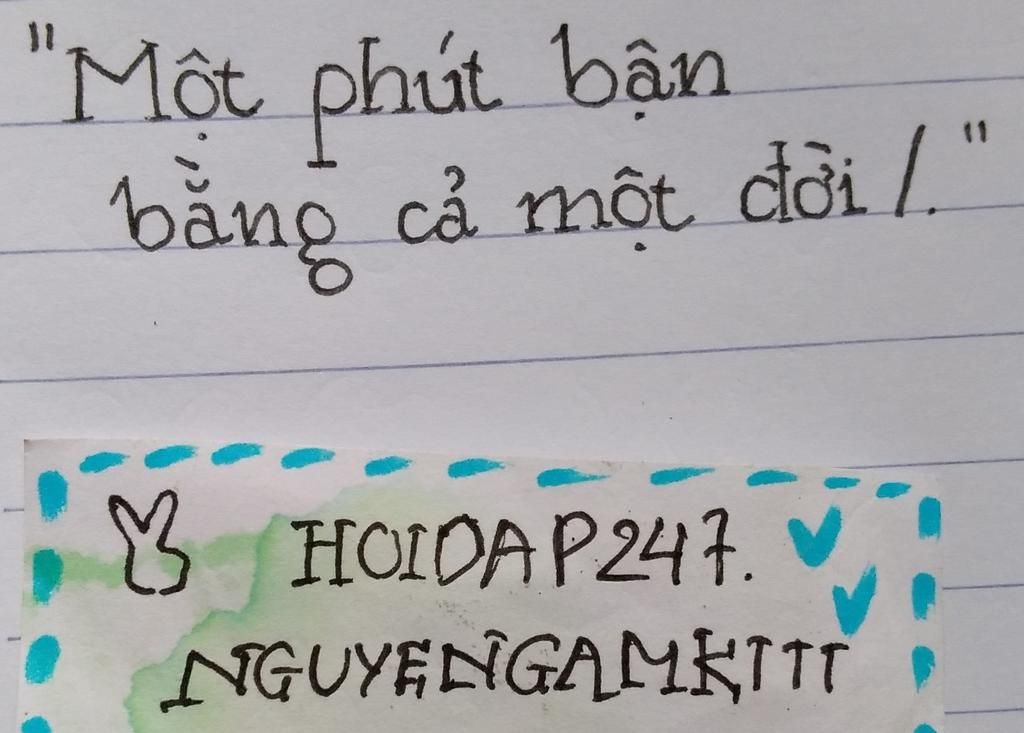 "Một phút bận
bằng cả một đời!."
HOIDAP247.
NGUYENGAMKTTT